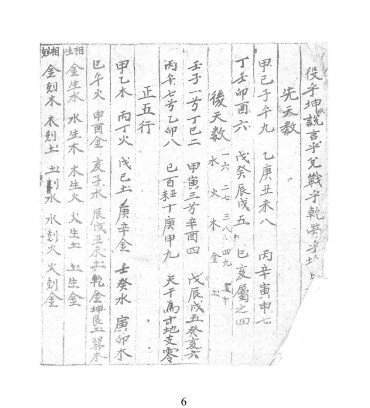 役乎坤說言乎兌戰乎乾勞乎坎
先天數
甲己子午九 乙庚丑未八 丙辛寅申七
丁壬卯酉六 戊癸辰戌五 巳亥屬之四
後天數 一六水 二七火 三八木 四九金 五十土
壬子一兮丁巳二 甲寅三兮辛酉四 戊辰戌五癸亥六
丙午七兮乙卯八 己百丑十庚申九 天干為寸地支零
正五行
甲乙木 丙丁火 戊己土 庚辛金 壬癸水 寅卯木
巳午火 申酉金 亥子水 辰戌丑未土 乾金坤艮土 巽木
相生 金生水 水生木 木生火 火生土 土生金
相剋 金剋木 木剋土 土剋水 水剋火 火剋金
6